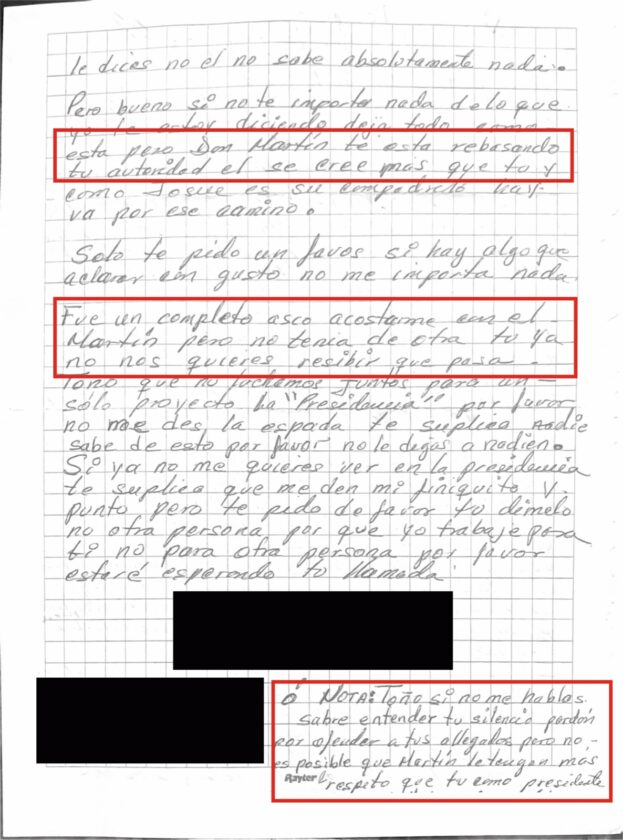 le dices no el no sabe absolutamente nada.
Pero bueno si no te importa nada de lo que
yo te estoy diciendo deja todo como
esta pero Don Martín te esta rebasando
tu autoridad el se cree mas que tu y
como Josue es su compadrito
va por ese camino.
Solo te pido un favos si hay algo que
aclarar con gusto no me importa nada.
Fue un completo asco acostarme con el
Martín pero no tenia de otra tu ya
no nos quieres resibir que pasa
Toño que no luchamos juntos para un
sólo proyecto La "Presidencia" por favor
no me des la espada te suplico nadie
sabe de esto por favor no le digas a nadien.
Si ya no me quieres ver en la presidencia
te suplico que me den mi finiquito y
punto pero te pido de favor tu dimelo
no otra persona por que yo trabaje para
ti no para otra persona por favor
estaré esperando tu llamada
NOTA: Toño si no me hablas
sabre entender tu silencio perdón
por ofender a tus allegados pero no
es posible que Martín le tengan mas
respeto que tu como presidente